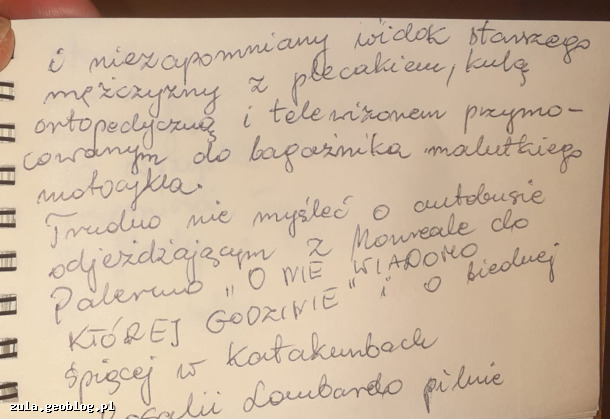 i niezapomniany widok starszego
mężczyzny z plecakiem, kulą
ortopedyczną i telewizorem przymo-
cowanym do bagażnika malutkiego
motocykla.
Trudno nie myśleć o autobusie
odjeżdżającym z Monreale do
Palermo "O NIE WIADOMO
KTÓREJ GODZINIE" i o biednej
śpiącej w Katakumbach
Rosalii Lombardo pilnie
zula.geoblog.pl